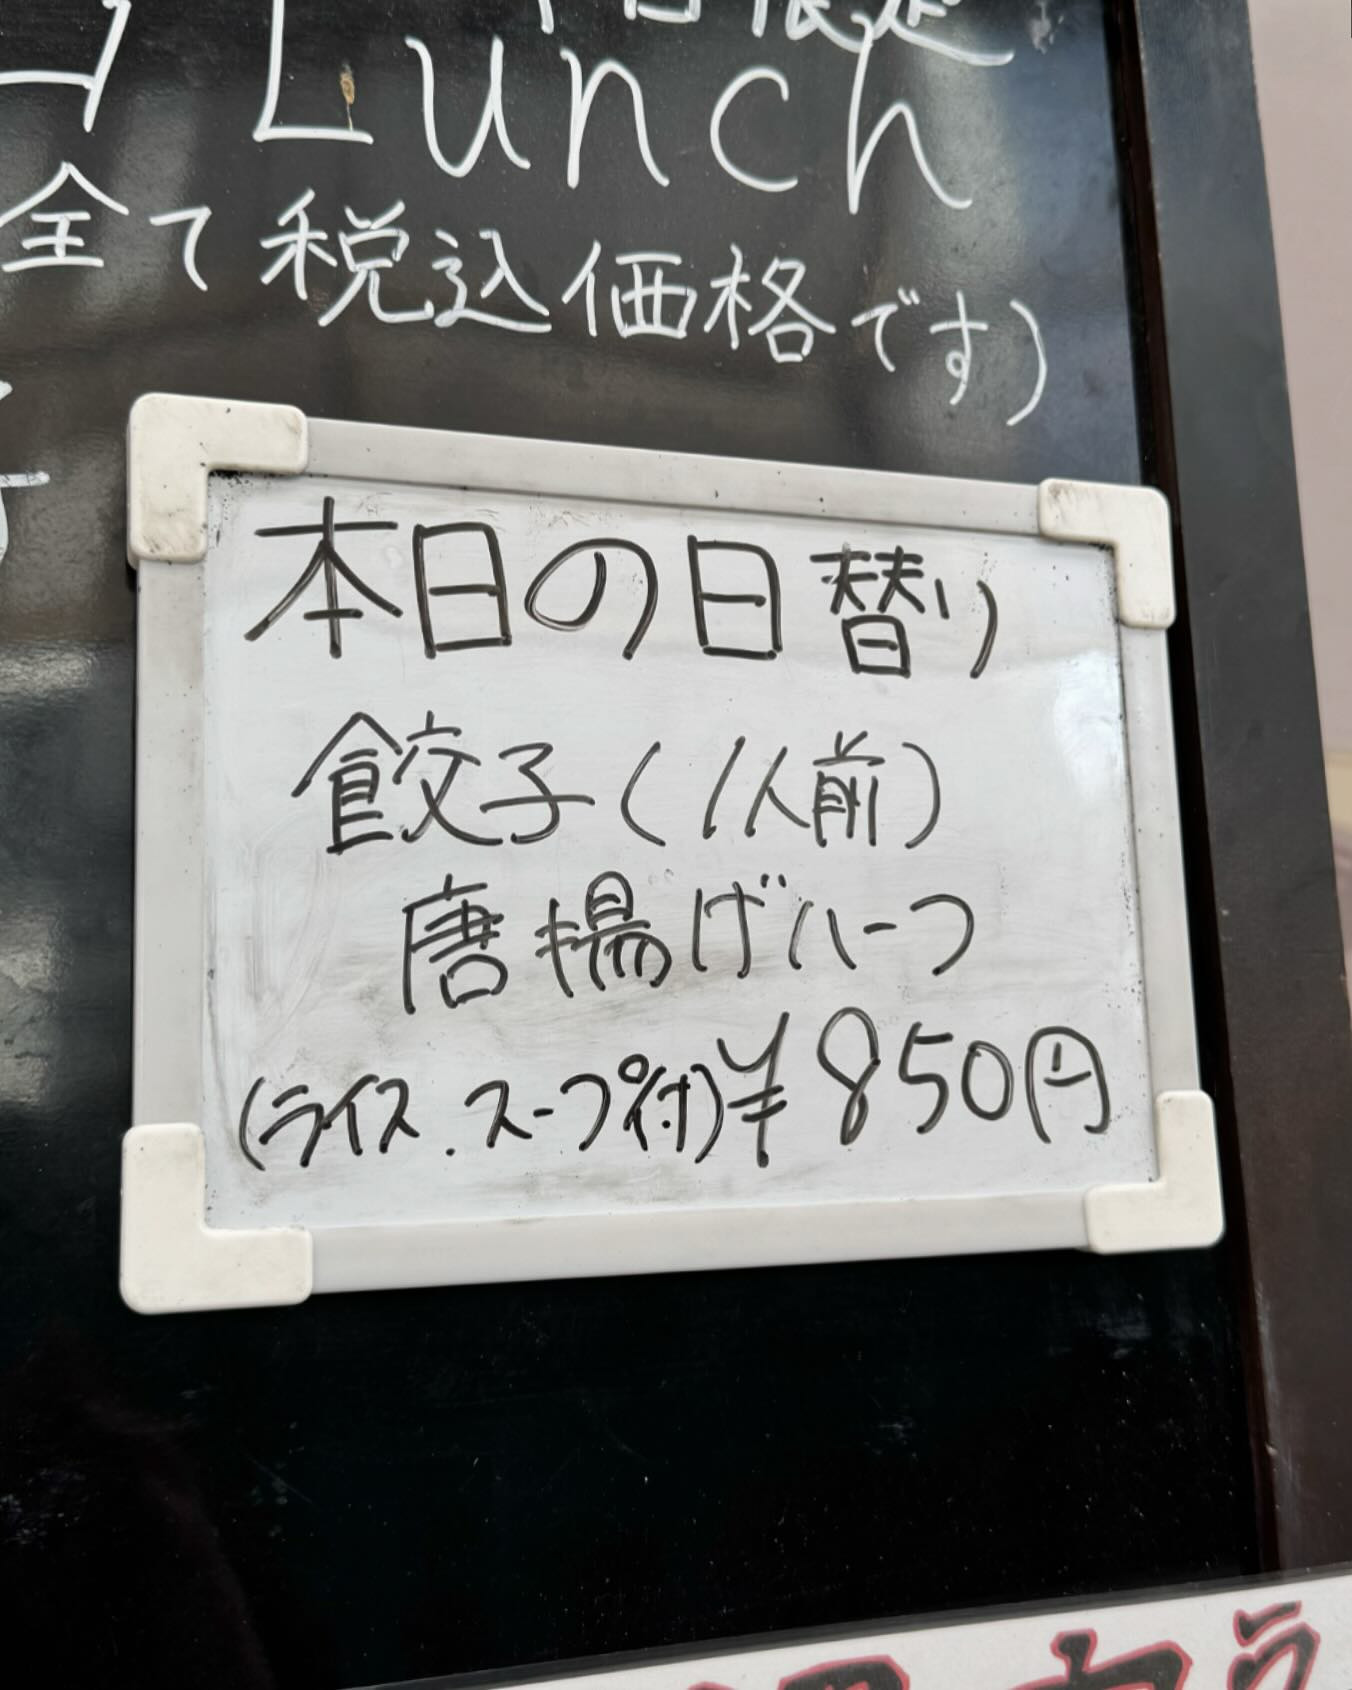 Lunch
全て税込価格です)
本日の日替り
餃子(1人前)
唐揚げハーフ
(ライス.スープ付)¥850円